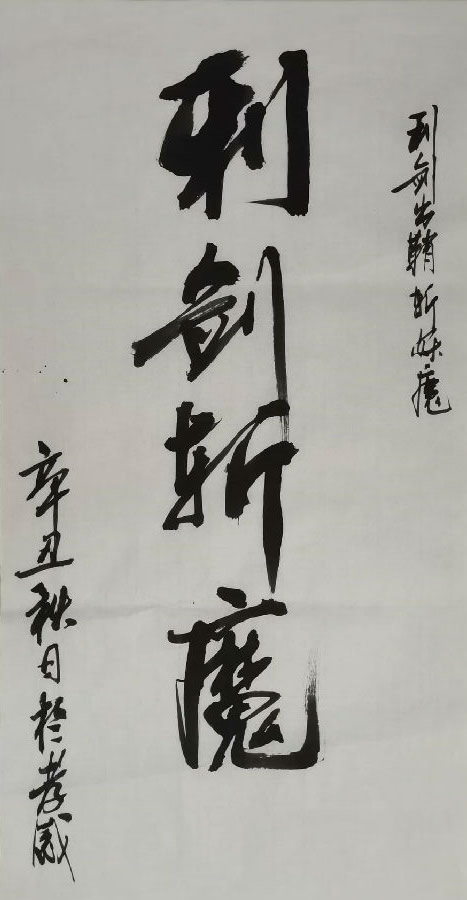 利剑出鞘斩妖魔
利剑斩魔
辛丑秋日於孝感